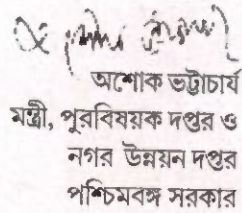 অশোক ভট্টাচার্য
মন্ত্রী, পুরবিষয়ক দপ্তর ও
নগর উন্নয়ন দপ্তর
পশ্চিমবঙ্গ সরকার